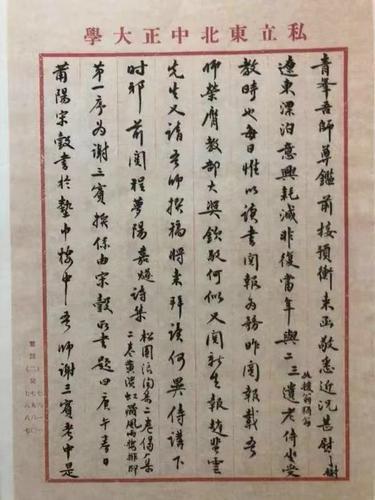 私立東北中正大學
青峯吾師尊鑑前接預衡來函敬悉近況甚慰謝
遼東漂泊意興耗減非復當年與二三遺老侍坐受
教時也每日惟以讀書閱報為務昨閱報載吾
師榮膺教部大獎欽敬何似又閱新生報趙雲
先生又請吾師撰稿將來拜讀何異侍講下
时邪 前閱程夢陽嘉燧詩集
松圓浪淘集二卷偈菴集
二卷黃濱虹藏風雨樓排印
第一序為謝三賓撰係由宋瑴所書題四庚午春日
莆陽宋瑴書於墊中按中吾師謝三賓考中是